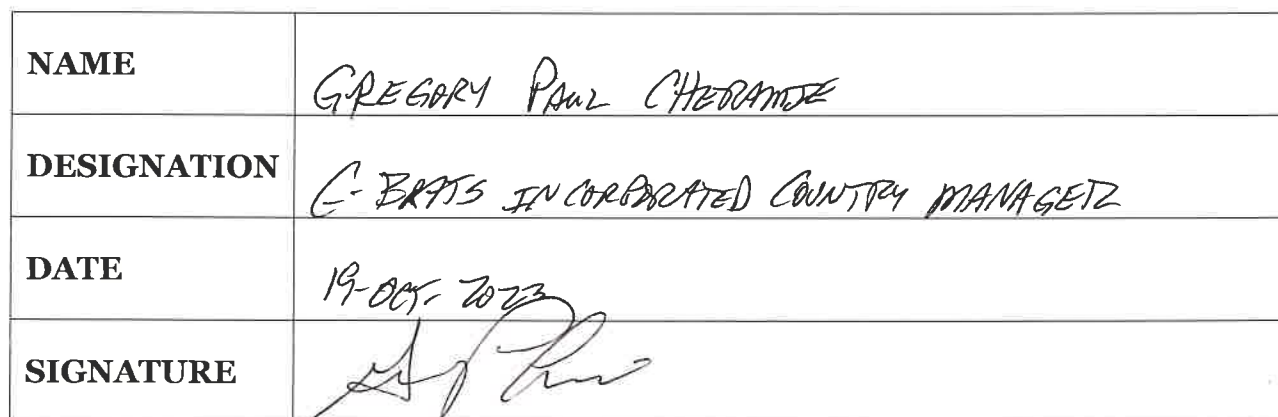 NAME GREGORY PAUL CHERAMIE
DESIGNATION C-BRATS INCORPORATED COUNTRY MANAGER
DATE 19-OCT-2023
SIGNATURE